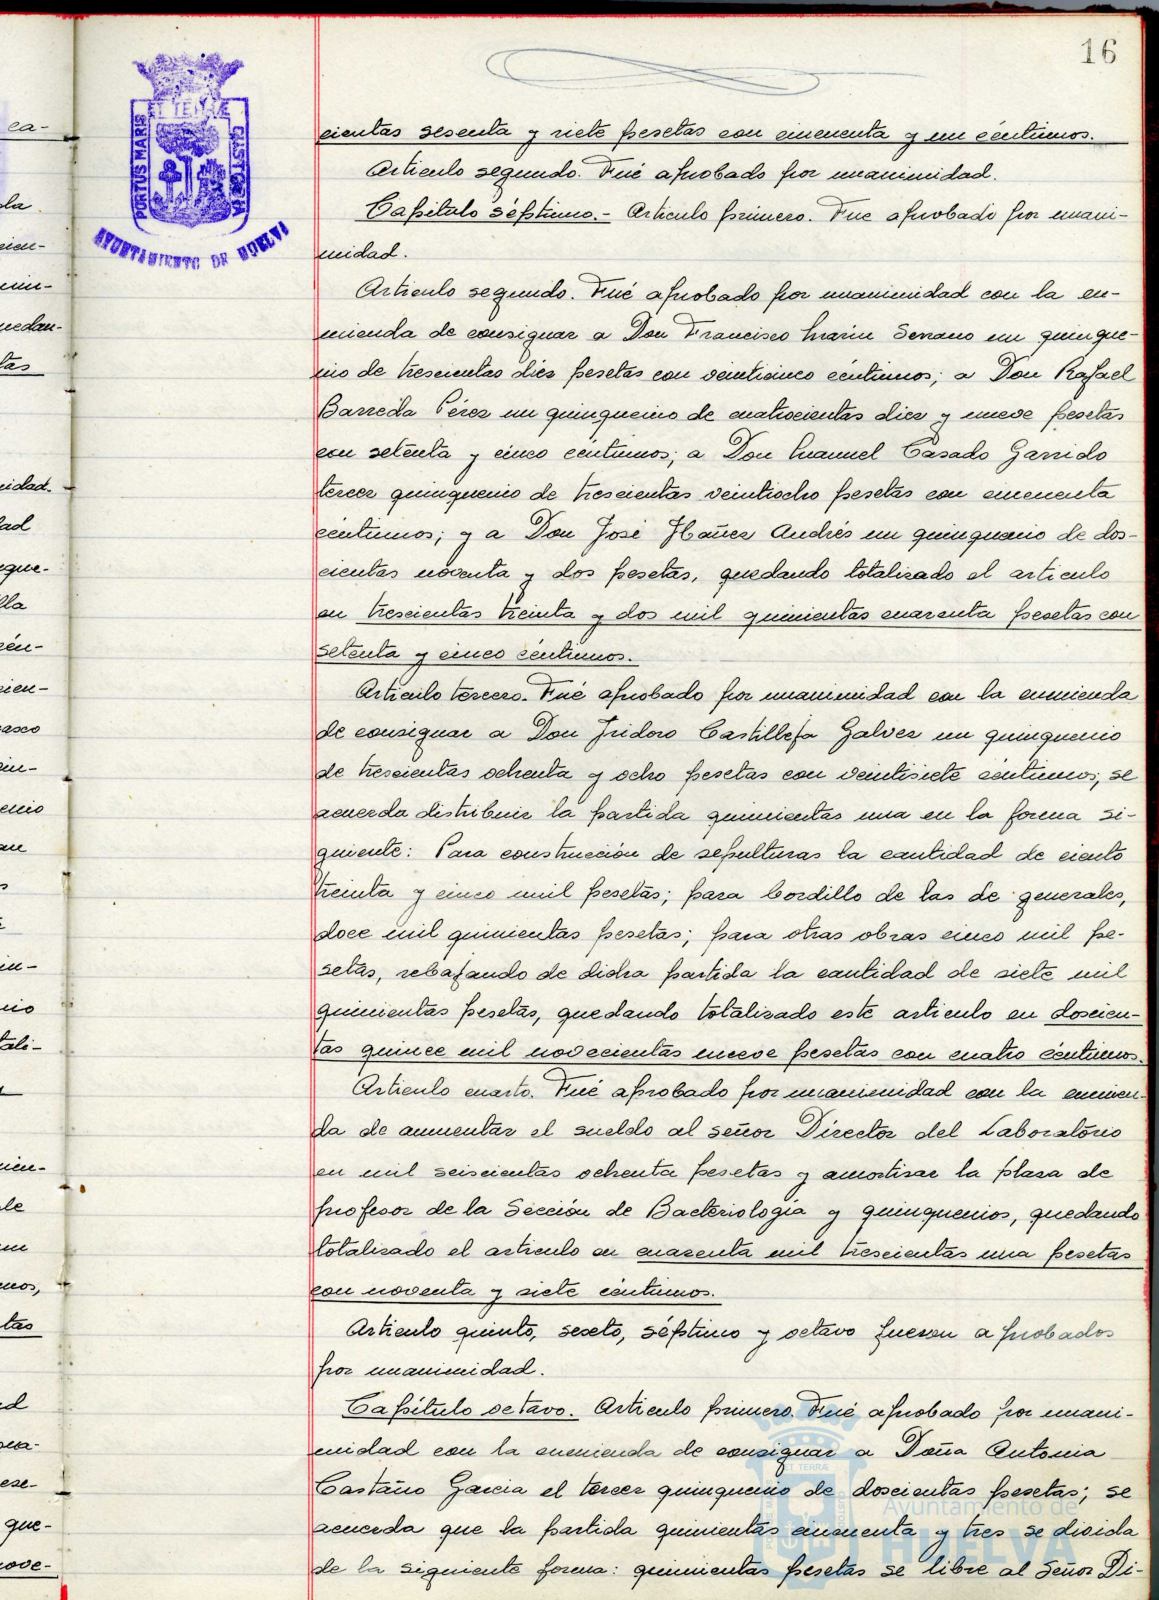 16
ET TERRÆ
PORTUS MARIS
CUSTODIA
AYUNTAMIENTO DE HUELVA
cientas sesenta y siete pesetas con cincuenta y un céntimos.
Artículo segundo. Fué aprobado por unanimidad.
Capítulo séptimo.- Artículo primero. Fue aprobado por unani-
midad.
Artículo segundo. Fué aprobado por unanimidad con la en-
mienda de consignar a Don Francisco Marín Serrano un quinque-
nio de trescientas diez pesetas con veinticinco céntimos; a Don Rafael
Barreda Pérez un quinquenio de cuatrocientas diez y nueve pesetas
con setenta y cinco céntimos; a Don Manuel Casado Garrido
tercer quinquenio de trescientas veintiocho pesetas con cincuenta
céntimos; y a Don José Ibañez Andrés un quinquenio de dos-
cientas noventa y dos pesetas, quedando totalizado el artículo
en trescientas treinta y dos mil quinientas cuarenta pesetas con
setenta y cinco céntimos.
Artículo tercero. Fué aprobado por unanimidad con la enmienda
de consignar a Don Isidoro Castilleja Galvez un quinquenio
de trescientas ochenta y ocho pesetas con veintisiete céntimos; se
acuerda distribuir la partida quinientas una en la forma si-
guiente: Para construcción de sepulturas la cantidad de ciento
treinta y cinco mil pesetas; para bordillo de las de generales,
doce mil quinientas pesetas; para otras obras cinco mil pe-
setas, rebajando de dicha partida la cantidad de siete mil
quinientas pesetas, quedando totalizado este artículo en doscien-
tas quince mil novecientas nueve pesetas con cuatro céntimos.
Artículo cuarto. Fué aprobado por unanimidad con la enmien-
da de aumentar el sueldo al señor Director del Laboratorio
en mil seiscientas ochenta pesetas y amortizar la plaza de
profesor de la Sección de Bacteriología y quinquenios, quedando
totalizado el artículo en cuarenta mil trescientas una pesetas
con noventa y siete céntimos.
Artículo quinto, sexto, séptimo y octavo fueron aprobados
por unanimidad.
Capítulo octavo. Artículo primero. Fué aprobado por unani-
midad con la enmienda de consignar a Doña Antonia
Castaño García el tercer quinquenio de doscientas pesetas; se
acuerda que la partida quinientas cincuenta y tres se divida
de la siguiente forma: quinientas pesetas se libre al Señor Di-
Ayuntamiento de
HUELVA